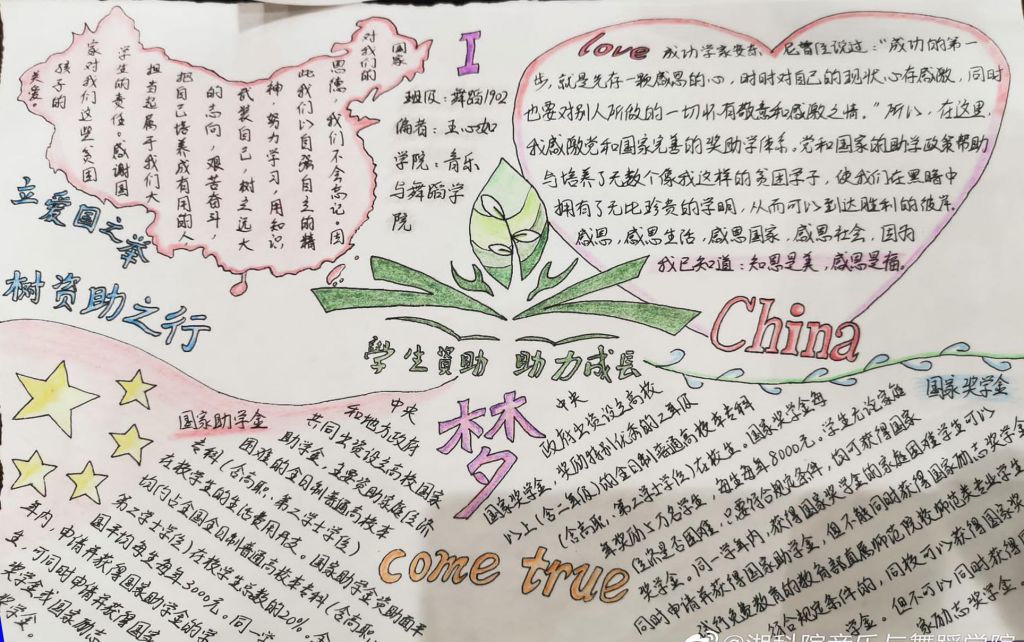 国家
对我们的
恩德，我们不会忘记。因
此我们以自强自主的精
神，努力学习，用知识
武装自己，树立远大
的志向，艰苦奋斗，
把自己培养成有用的人
担当起属于我们大
学生的责任。感谢国
家对我们这些贫困
孩子的
关爱。
I
班级：舞蹈1902
编者：王心如
学院：音乐
与舞蹈学
院
love 成功学家安东尼曾经说过："成功的第一
步，就是先存一颗感恩的心，时时对自己的现状心存感激，同时
也要对别人所做的一切怀有敬意和感激之情。"所以，在这里，
我感激党和国家完善的奖助学体系。党和国家的助学政策帮助
与培养了无数个像我这样的贫困学子，使我们在黑暗中
拥有了无比珍贵的学明，从而可以到达胜利的彼岸。
感恩，感恩生活，感恩国家，感恩社会，因为
我已知道：知恩是美，感恩是福。
China
立爱国之举
树资助之行
學生資助 助力成長
梦
come true
国家助学金
中央
和地方政府
共同出资设立高校国家
助学金，主要资助家庭经济
困难的全日制普通高校本
专科（含高职、第二学士学位）
在校学生的生活费用开支。国家助学金资助面平
均约占全国全日制普通高校本专科（含高职、
第二学士学位）在校学生总数的20%。全
国平均每生每年3000元。同一学
年内，申请并获得国家助学金的学
生，可同时申请并获得国
家奖学金或国家励志
奖学金。
国家奖学金
中央
政府出资设立高校
国家奖学金，奖励特别优秀的二年级
以上（含二年级）的全日制普通高校本专科
（含高职、第二学士学位）在校生。国家奖学金每
年奖励5万名学生，每生每年8000元。学生无论家庭
经济是否困难，只要符合规定条件，均可获得国家
奖学金。同一学年内，获得国家奖学金的家庭困难学生可以
同时申请并获得国家助学金，但不能同时获得国家励志奖学金。
试行免费教育的教育部直属师范院校师范类专业学生
符合规定条件的，同校可以获得国家奖
学金。但不可以同时获得国
家励志奖学金。
@湖科院音乐与舞蹈学院